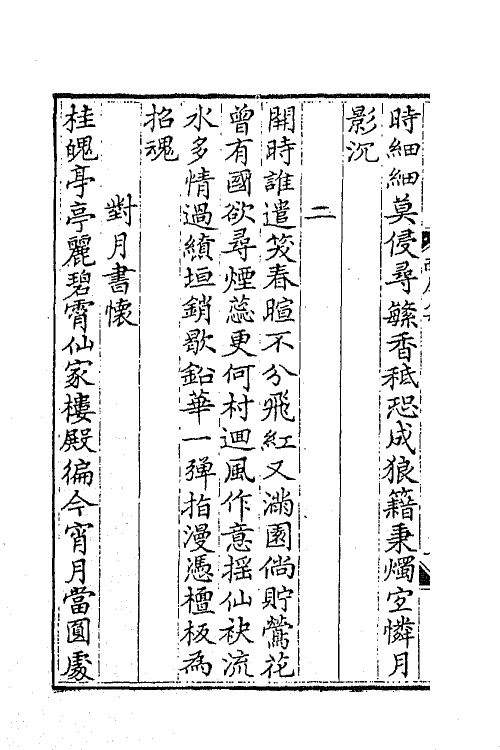 時細細莫侵尋緐香秪恐成狼籍秉燭空憐月
影沉
二
開時誰遣笑春暄不分飛紅又滿園倘貯鶯花
曾有國欲尋煙蕊更何村迴風作意揺仙袂流
水多情過繢垣銷歇鉛華一彈指漫憑檀板為
招魂
對月書懷
桂魄亭亭麗碧霄仙家樓殿徧今宵月當圓處